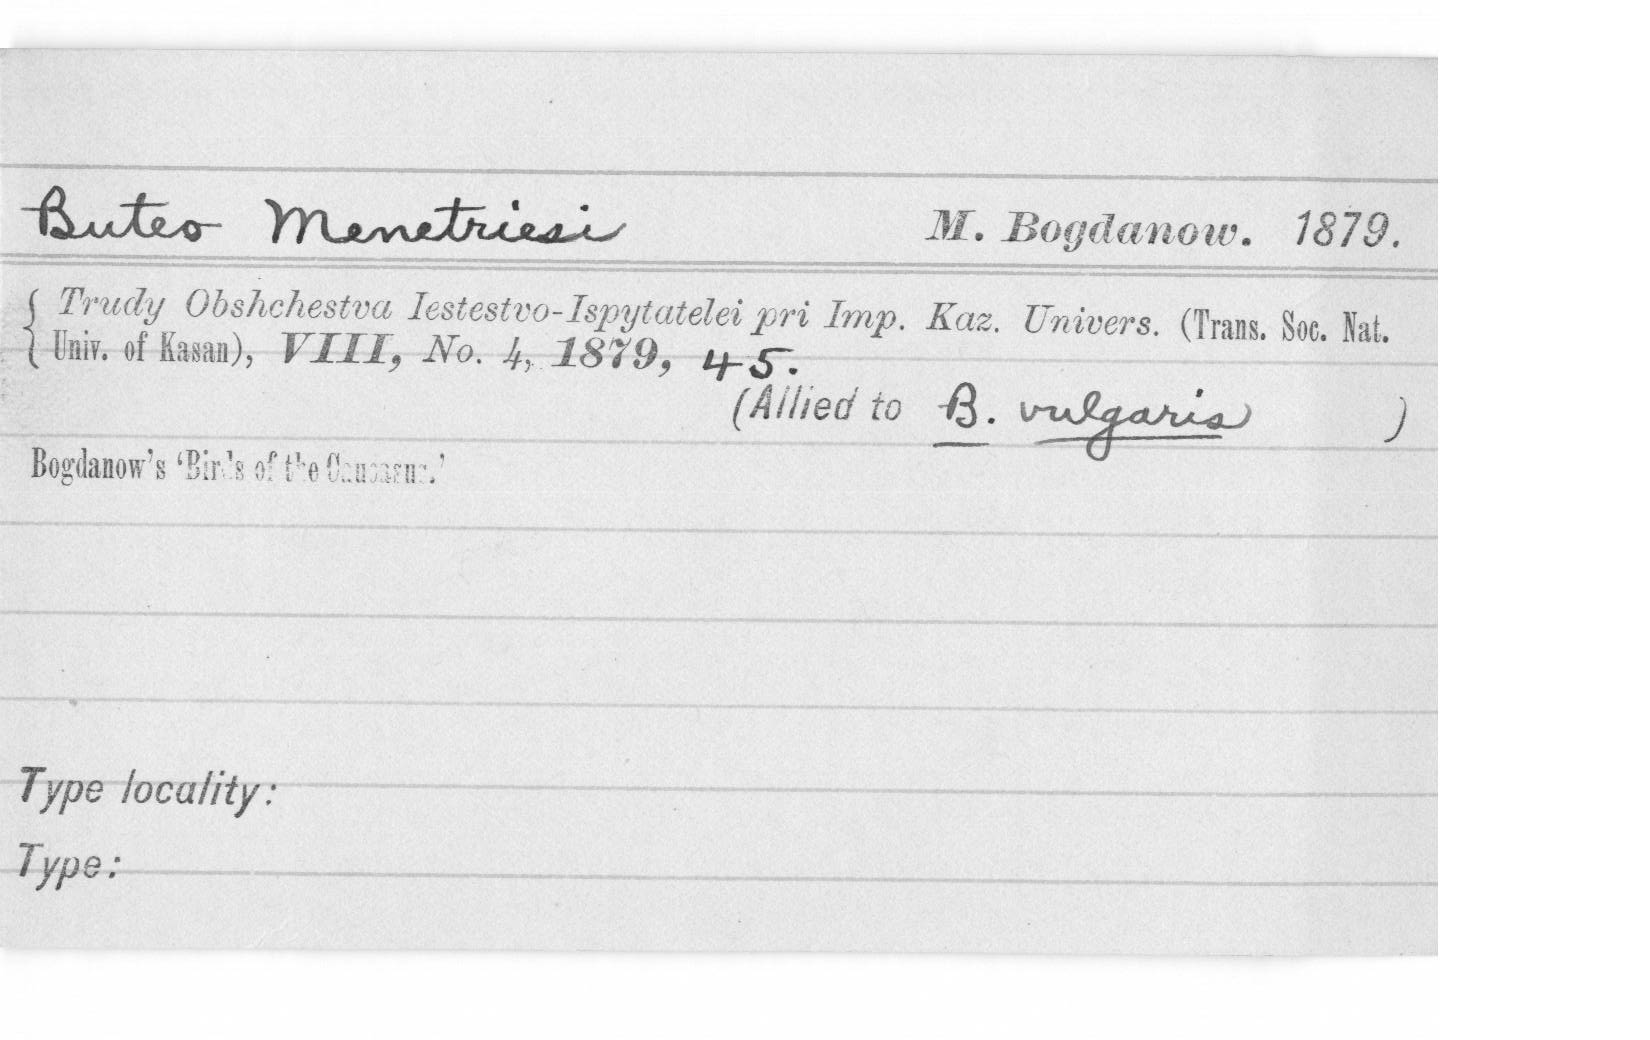 Buteo Menetriesi M. Bogdanow. 1879.
Trudy Obshchestva Iestestvo-Ispytatelei pri Imp. Kaz. Univers. (Trans. Soc. Nat.
Univ. of Kasan), VIII, No. 4, 1879, 45.
(Allied to B. vulgaris )
Bogdanow's 'Birds of the Caucasus.'
Type locality:
Type: